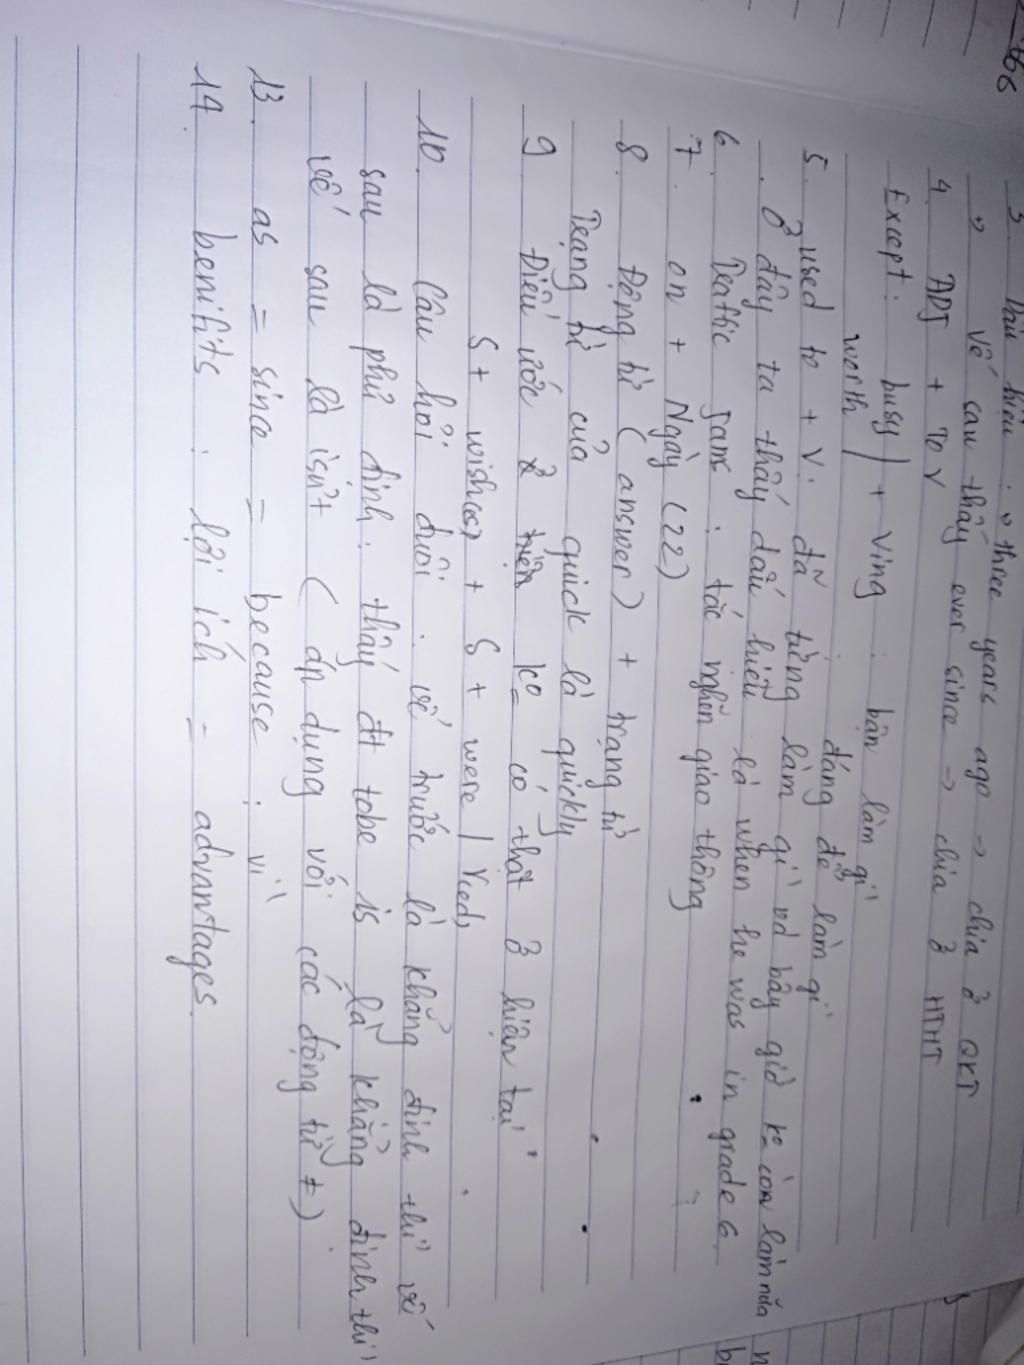 3. Dấu hiệu : three years ago → chia ở QKĐ
vế sau thấy ever since → chia ở HTHT
4. ADJ + TO V
Except : busy / + Ving : bận làm gì
worth / đáng để làm gì
5. used to + V. đã từng làm gì và bây giờ ko còn làm nữa
. Ở đây ta thấy dấu hiệu là when he was in grade 6
6. Traffic jams : tắc nghẽn giao thông
7. on + Ngày (22)
8. Động từ ( answer) + trạng từ
Trạng từ của quick là quickly
9 Điều ước ko có thật ở hiện tại
S + wish(es) + S + were / Ved,
10. Câu hỏi đuôi . vế trước là khẳng định thì vế
sau là phủ định : thấy đt tobe is là khẳng định thì
vế sau là isn't ( áp dụng với các động từ ≠ )
13. as = since = because : vì
14. benifits : lợi ích = advantages.